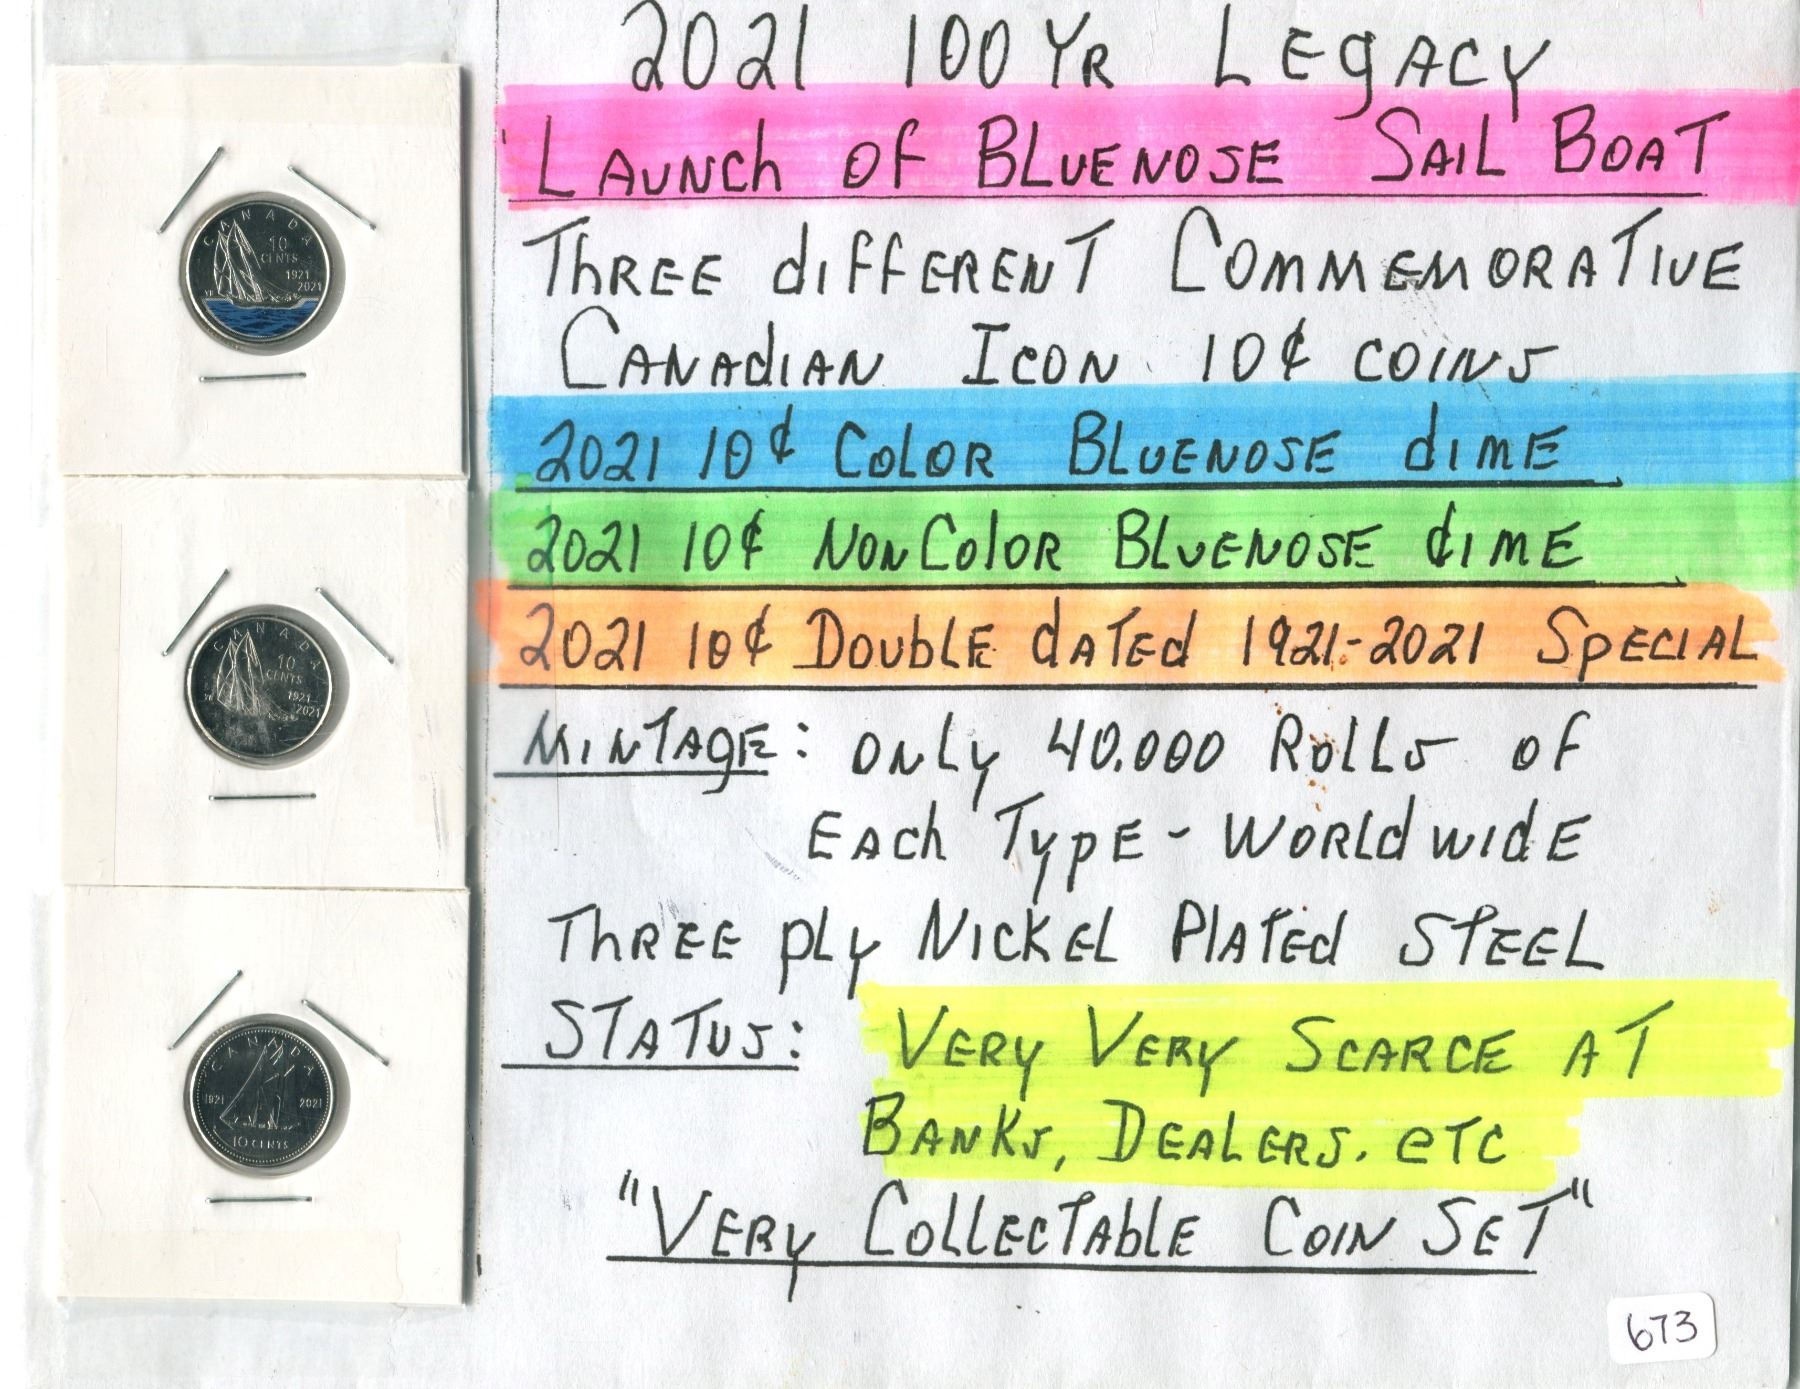 2021 100 YR LEGACY
LAUNCH OF BLUENOSE SAIL BOAT
THREE DIFFERENT COMMEMORATIVE
CANADIAN ICON 10¢ COINS
2021 10¢ COLOR BLUENOSE DIME
2021 10¢ NON COLOR BLUENOSE DIME
2021 10¢ DOUBLE DATED 1921-2021 SPECIAL
MINTAGE: ONLY 40,000 ROLLS OF
EACH TYPE - WORLD WIDE
THREE PLY NICKEL PLATED STEEL
STATUS: VERY VERY SCARCE AT
BANKS, DEALERS. ETC
"VERY COLLECTABLE COIN SET"
673
CANADA
10
CENTS
1921
2021
CANADA
10
CENTS
1921
2021
CANADA
1921 2021
10 CENTS